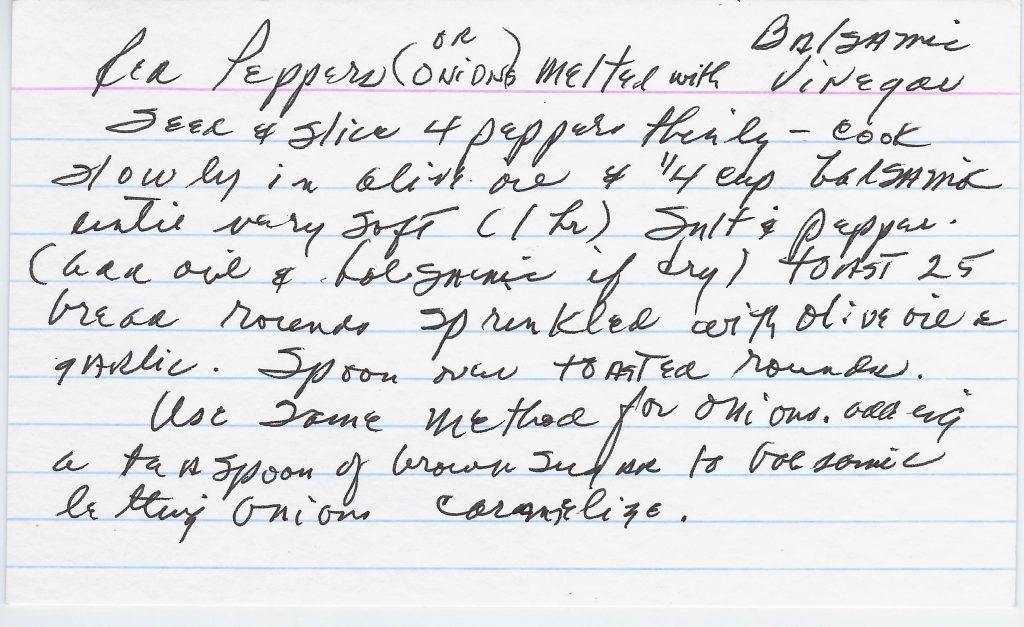 Red Peppers (OR ONIONS) Melted with Balsamic Vinegar
Seed & slice 4 peppers thinly - cook
slowly in olive oil & 1/4 cup balsamic
until very soft (1 hr) Salt & pepper.
(add oil & balsamic if dry) TOAST 25
bread rounds sprinkled with olive oil &
garlic. Spoon over TOASTED rounds.
Use same method for onions. adding
a teaspoon of brown sugar to balsamic
letting onions caramelize.